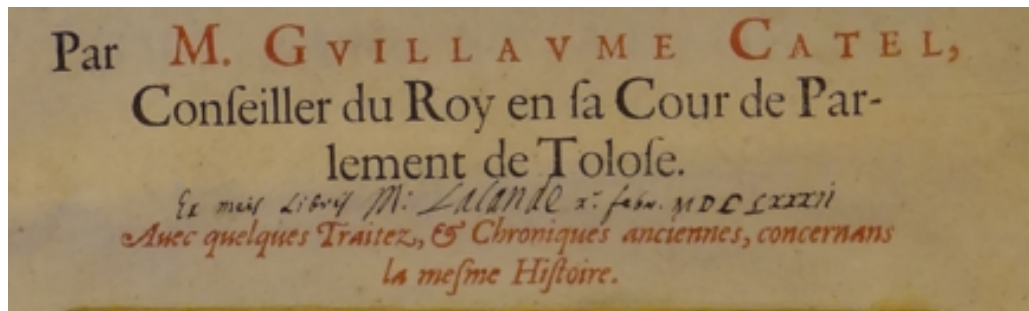 Par M. GVILLAVME CATEL,
Conſeiller du Roy en ſa Cour de Par-
lement de Toloſe.
Ex meis Libris M: Lalande x: febr. MDCLXXXII
Auec quelques Traitez, & Chroniques anciennes, concernans
la meſme Hiſtoire.